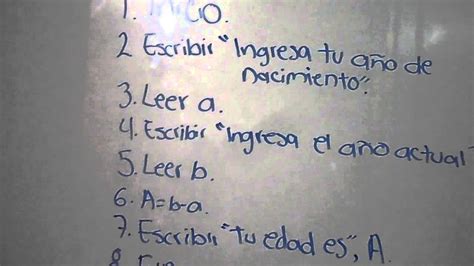 1. INICIO.
2 Escribir "Ingresa tu año de
nacimiento".
3. Leer a.
4. Escribir "Ingresa el año actual"
5. Leer b.
6. A=b-a.
7. Escribir "tu edad es", A.
8. Fin